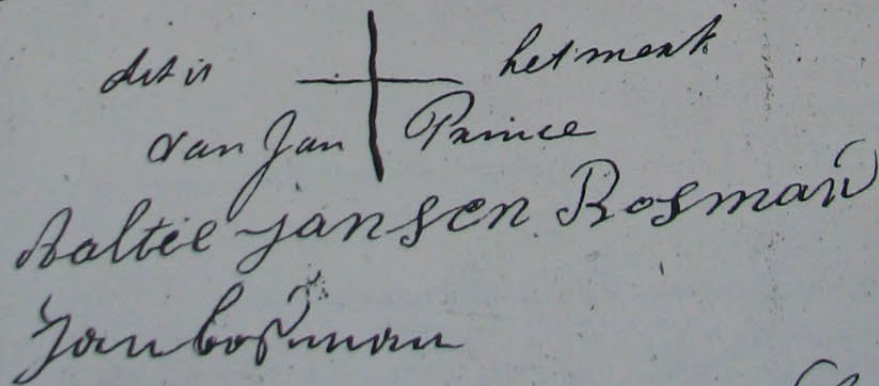 dit is het merk
van Jan Prince
Aaltie Jansen Bosman
Jan bosman